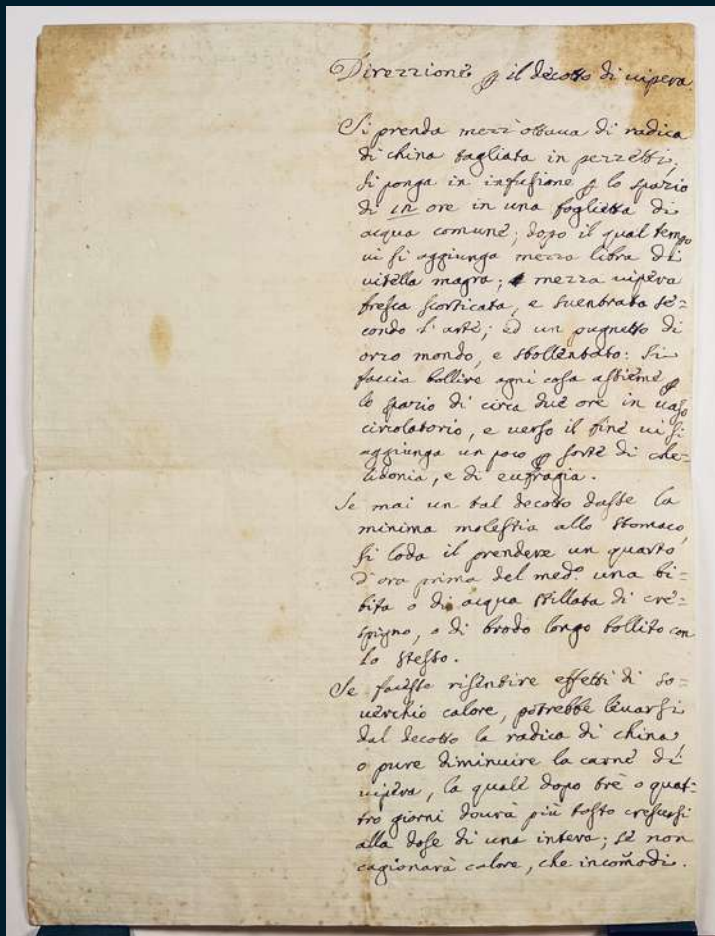 Direzzione p il decotto di vipera
Si prenda mezz'ottava di radica
di china tagliata in pezzetti;
si ponga in infusione p lo spazio
di ore in una foglietta di
acqua comune; dopo il qual tempo
vi si aggiunga mezza libra di
vitella magra; mezza vipera
fresca scorticata, e suentrata se=
condo l'arte; ed un pugnetto di
orzo mondo, e sbollentato: Si
faccia bollire ogni cosa assieme p
lo spazio di circa due ore in vaso
circolatorio, e verso il fine vi si
aggiunga un poco p sorte di cele=
donia, e di eufragia.
Se mai un tal decotto dasse la
minima molestia allo stomaco,
si loda il prendere un quarto
d'ora prima del med.o una bi=
bita o di acqua stillata di cre=
spigno, o di brodo longo bollito con
lo stesso.
Se facesse risentire effetti di so=
verchio calore, potrebbe levarsi
dal decotto la radica di china,
o pure diminuire la carne di
vipera, la quale dopo tre o quat=
tro giorni dovrà più tosto crescersi
alla dose di una intera; se non
cagionarà calore, che incomodi.